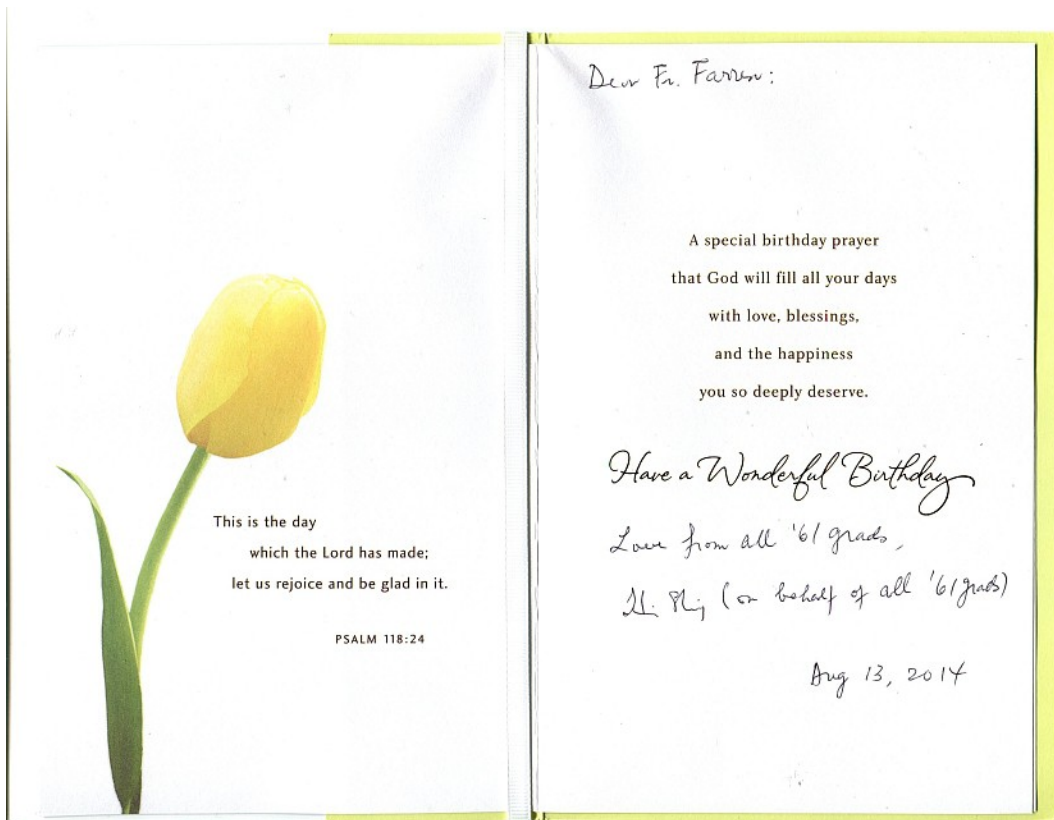 This is the day
which the Lord has made;
let us rejoice and be glad in it.
PSALM 118:24
Dear Fr. Farren:
A special birthday prayer
that God will fill all your days
with love, blessings,
and the happiness
you so deeply deserve.
Have a Wonderful Birthday
Love from all '61 grads,
(on behalf of all '61 grads)
Aug 13, 2014